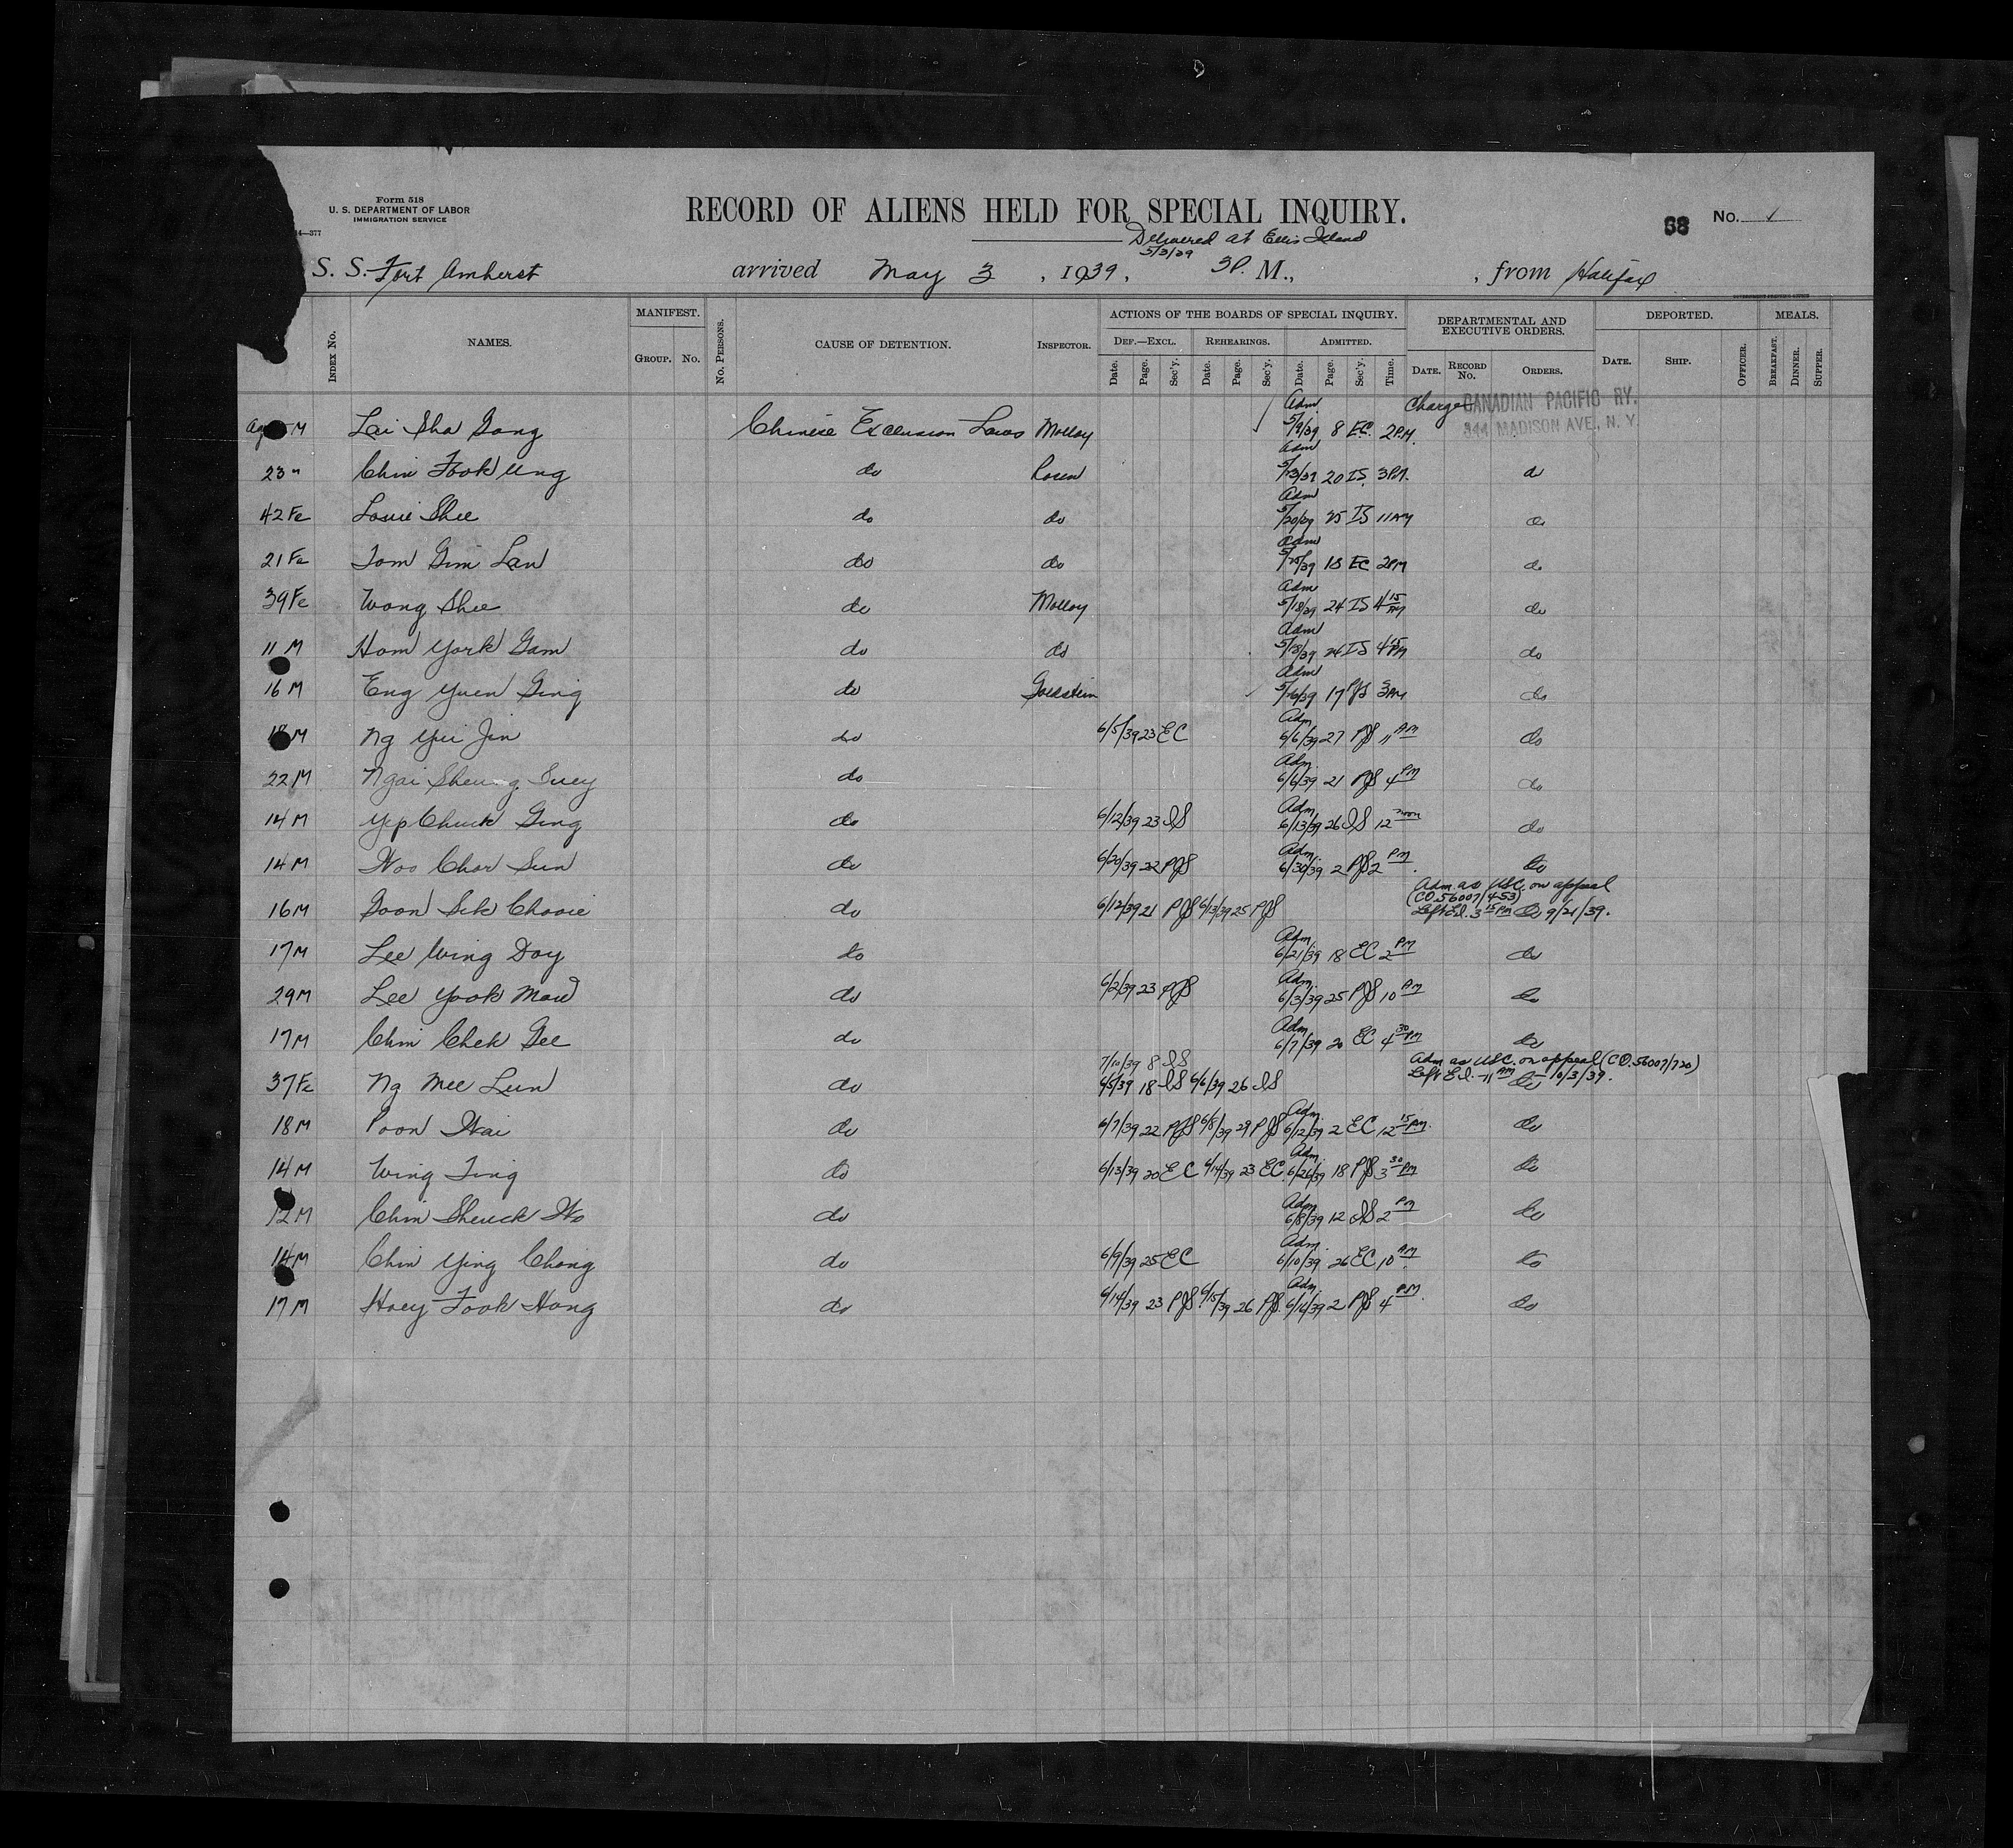 Form 518
U. S. DEPARTMENT OF LABOR
IMMIGRATION SERVICE
14—377
RECORD OF ALIENS HELD FOR SPECIAL INQUIRY.
68 No.
Delivered at Ellis Island
5/3/39
S. S. Fort Amherst arrived May 3, 1939, 3P. M., , from Halifax
INDEX No. NAMES. MANIFEST. GROUP. No. No. PERSONS. CAUSE OF DETENTION. INSPECTOR. ACTIONS OF THE BOARDS OF SPECIAL INQUIRY. DEF.—EXCL. REHEARINGS. ADMITTED. Date. Page. Sec'y. Date. Page. Sec'y. Date. Page. Sec'y. Time. DEPARTMENTAL AND EXECUTIVE ORDERS. DATE. RECORD No. ORDERS. DEPORTED. DATE. SHIP. OFFICER. MEALS. BREAKFAST. DINNER. SUPPER.
Charge CANADIAN PACIFIC RY.
344 MADISON AVE., N. Y.
M Lai Sha Gong Chinese Exclusion Laws Molloy Adm 5/9/39 8 EC 2PM.
23 " Chin Fook Ung do Rosen Adm 5/13/39 20 IS 3PM. do
42 Fe Louie Shee do do Adm 5/20/39 25 IS 11AM do
21 Fe Tom Gim Lan do do Adm 5/25/39 18 EC 2PM do
39 Fe Wong Shee do Molloy Adm 5/18/39 24 IS 4 15 PM do
11 M Hom York Gam do do Adm 5/18/39 24 IS 4 15 PM do
16 M Eng Yuen Ging do Goldstein Adm 5/16/39 17 PJS 3PM do
M Ng Yui Jin do 6/5/39 23 EC Adm. 6/6/39 27 PJS 11 AM do
22 M Ngai Sheung Suey do Adm. 6/6/39 21 PJS 4 PM do
14 M Yep Chuck Ging do 6/12/39 23 IS Adm. 6/13/39 26 IS 12 noon do
14 M Woo Chor Sun do 6/20/39 22 PJS Adm. 6/30/39 2 PJS 2 PM do
Adm. as USC. on appeal
(CO.56007/453)
16 M Goon Sik Chooie do 6/12/39 21 PJS 6/13/39 25 PJS Left E.I. 3 15 PM do 9/21/39.
17 M Lee Wing Doy do Adm. 6/21/39 18 EC 2 PM do
29 M Lee Yook Mow do 6/2/39 23 PJS Adm. 6/3/39 25 PJS 10 AM do
17 M Chin Chek Gee do Adm. 6/7/39 20 EC 4 30 PM do
7/10/39 8 IS Adm. as USC. on appeal (CO.56007/720)
37 Fe Ng Mee Lun do 6/5/39 18 IS 6/6/39 26 IS Left E.I. - 11 AM do 10/3/39.
18 M Poon Wai do 6/7/39 22 PJS 6/8/39 29 PJS Adm. 6/12/39 2 EC 12 15 PM. do
14 M Wing Ting do 6/13/39 20 EC 6/14/39 23 EC Adm. 6/26/39 18 PJS 3 30 PM do
12 M Chin Sheuck Wo do Adm. 6/8/39 12 IS 2 PM do
14 M Chin Ying Chong do 6/9/39 25 EC Adm. 6/10/39 26 EC 10 AM do
17 M Hoey Fook Hong do 6/14/39 23 PJS 6/15/39 26 PJS Adm. 6/16/39 2 PJS 4 PM. do